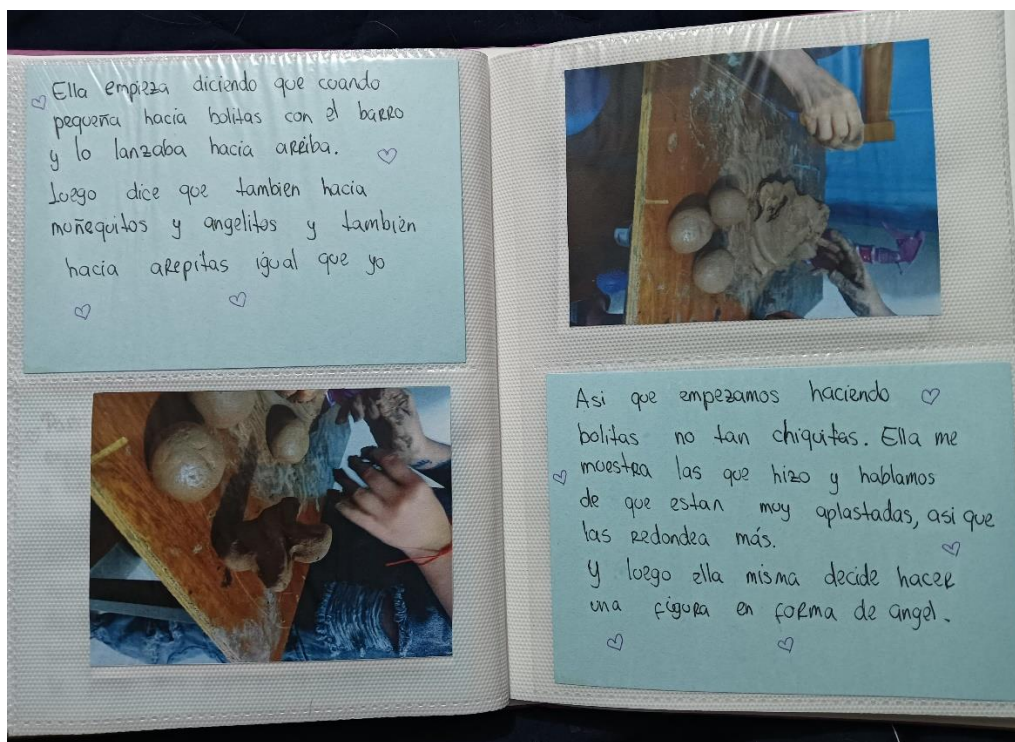 Ella empieza diciendo que cuando
pequeña hacia bolitas con el barro
y lo lanzaba hacia arriba.
Luego dice que tambien hacia
muñequitos y angelitos y también
hacia arepitas igual que yo
Asi que empezamos haciendo
bolitas no tan chiquitas. Ella me
muestra las que hizo y hablamos
de que estan muy aplastadas, asi que
las redondea más.
Y luego ella misma decide hacer
una figura en forma de angel.